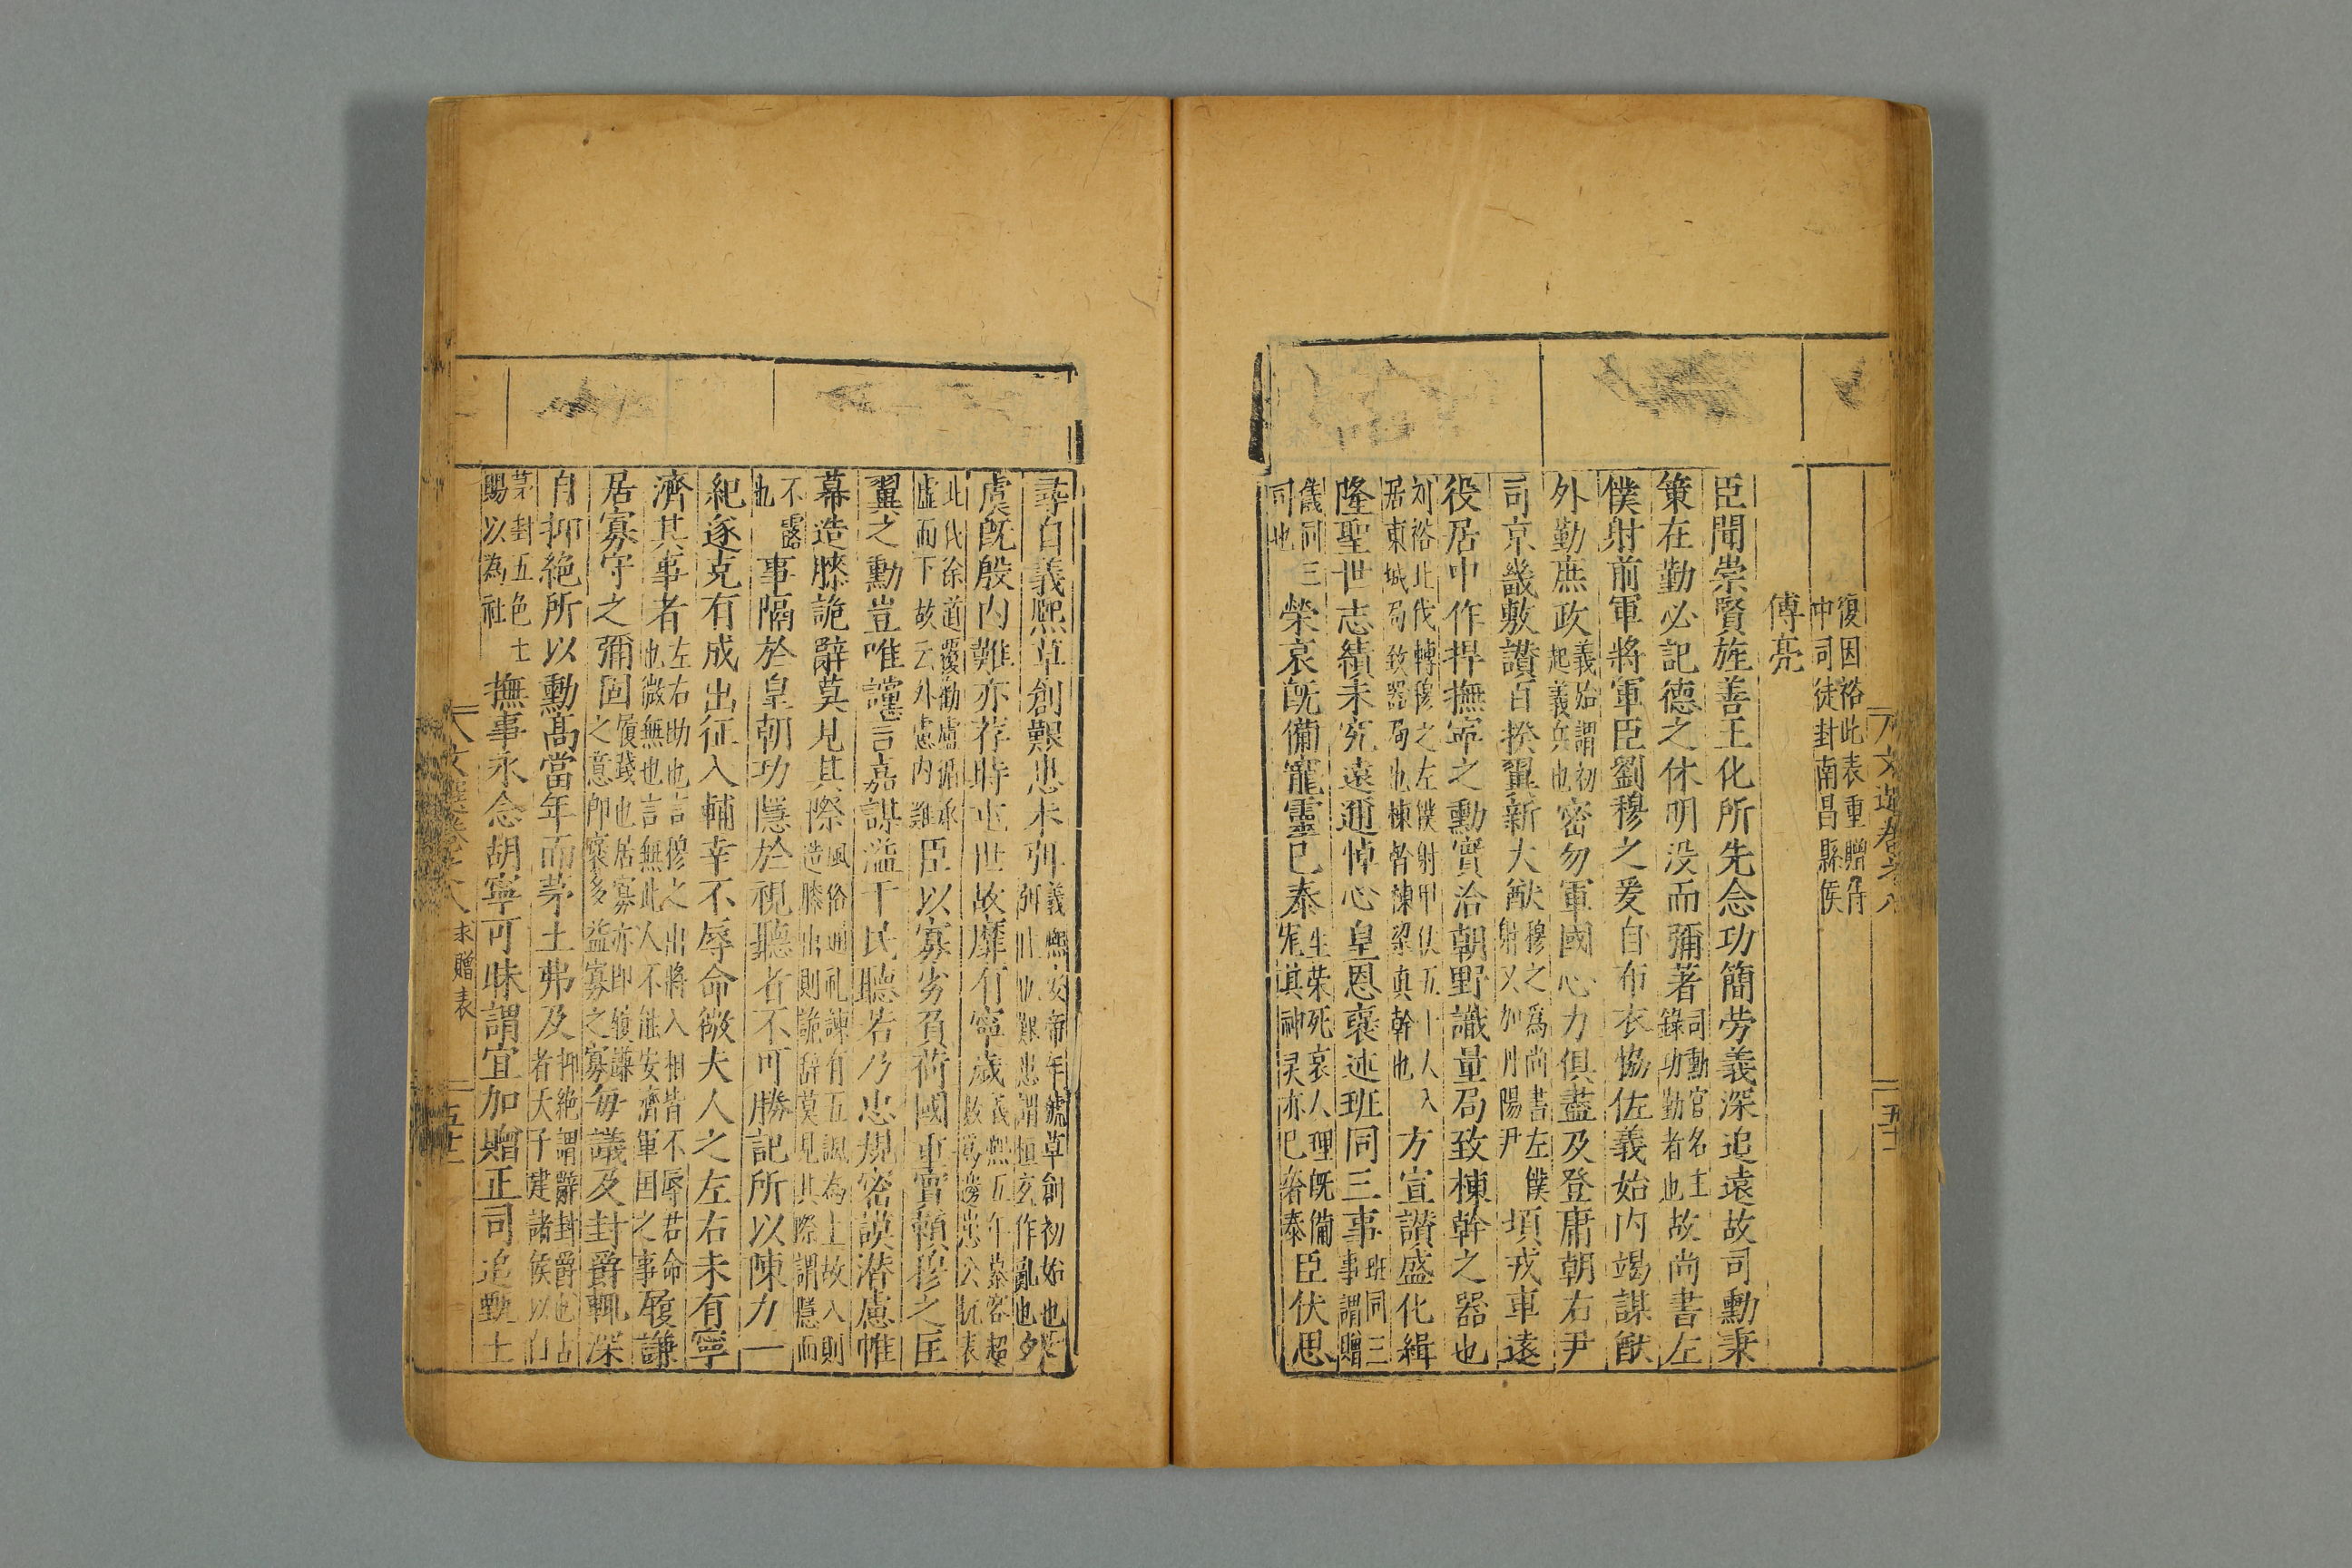 復因裕此表重贈侍
中司徒封南昌縣侯
傅亮
臣聞崇賢旌善王化所先念功簡勞義深追遠故司勳秉
策在勤必記德之休明没而彌著司勳官名主錄功勤者也故尚書左
僕射前軍將軍臣劉穆之爰自布衣協佐義始内竭謀猷
外勤庶政義始謂初起義兵也密勿軍國心力俱盡及登庸朝右尹
司京畿敷讃百揆翼新大猷穆之爲尚書左僕射又加丹陽尹頃戎車遠
役居中作捍撫寧之勳實洽朝野識量局致棟幹之器也
刘裕北伐轉穆之左僕射甲仗五十人入居東城局致器局也棟幹棟梁真幹也方宣讃盛化緝
隆聖世志績未究遠邇悼心皇恩襃述班同三事班同三事謂贈
儀同三司也榮哀既備寵靈已泰生荣死哀人理既備神灵亦已奢泰臣伏思
尋自義熙草創艱患未弭義熙安帝年號草創初始也弭止也艱患謂桓玄作亂也
虞既殷内難亦荐時屯世故靡有寧歲
北伐徐道覆勸盧循承虚而下故云外虞内難臣以寡劣負荷國重實賴穆之匡
翼之勳豈唯讜言嘉謀溢于民聽若乃忠規密謨潜慮帷
幕造膝詭辭莫見其際風俗通礼諫有五諷為上故入則造膝出則詭辞莫見其際謂隱而
不露也事隔於皇朝功隱於視聽者不可勝記所以陳力一
紀遂克有成出征入輔幸不辱命微夫人之左右未有寧
濟其事者左右助也言穆之出將入相皆不辱君命也微無也言無此人不能安濟軍国之事履謙
居寡守之彌固履踐也居寡亦即履謙之意即裒多益寡之寡每議及封爵輒深
自抑絶所以勳高當年而茅土弗及抑絶謂辭封爵也古者天子建諸侯以白
茅封五色土賜以為社撫事永念胡寧可昧謂宜加贈正司追甄土
求贈表